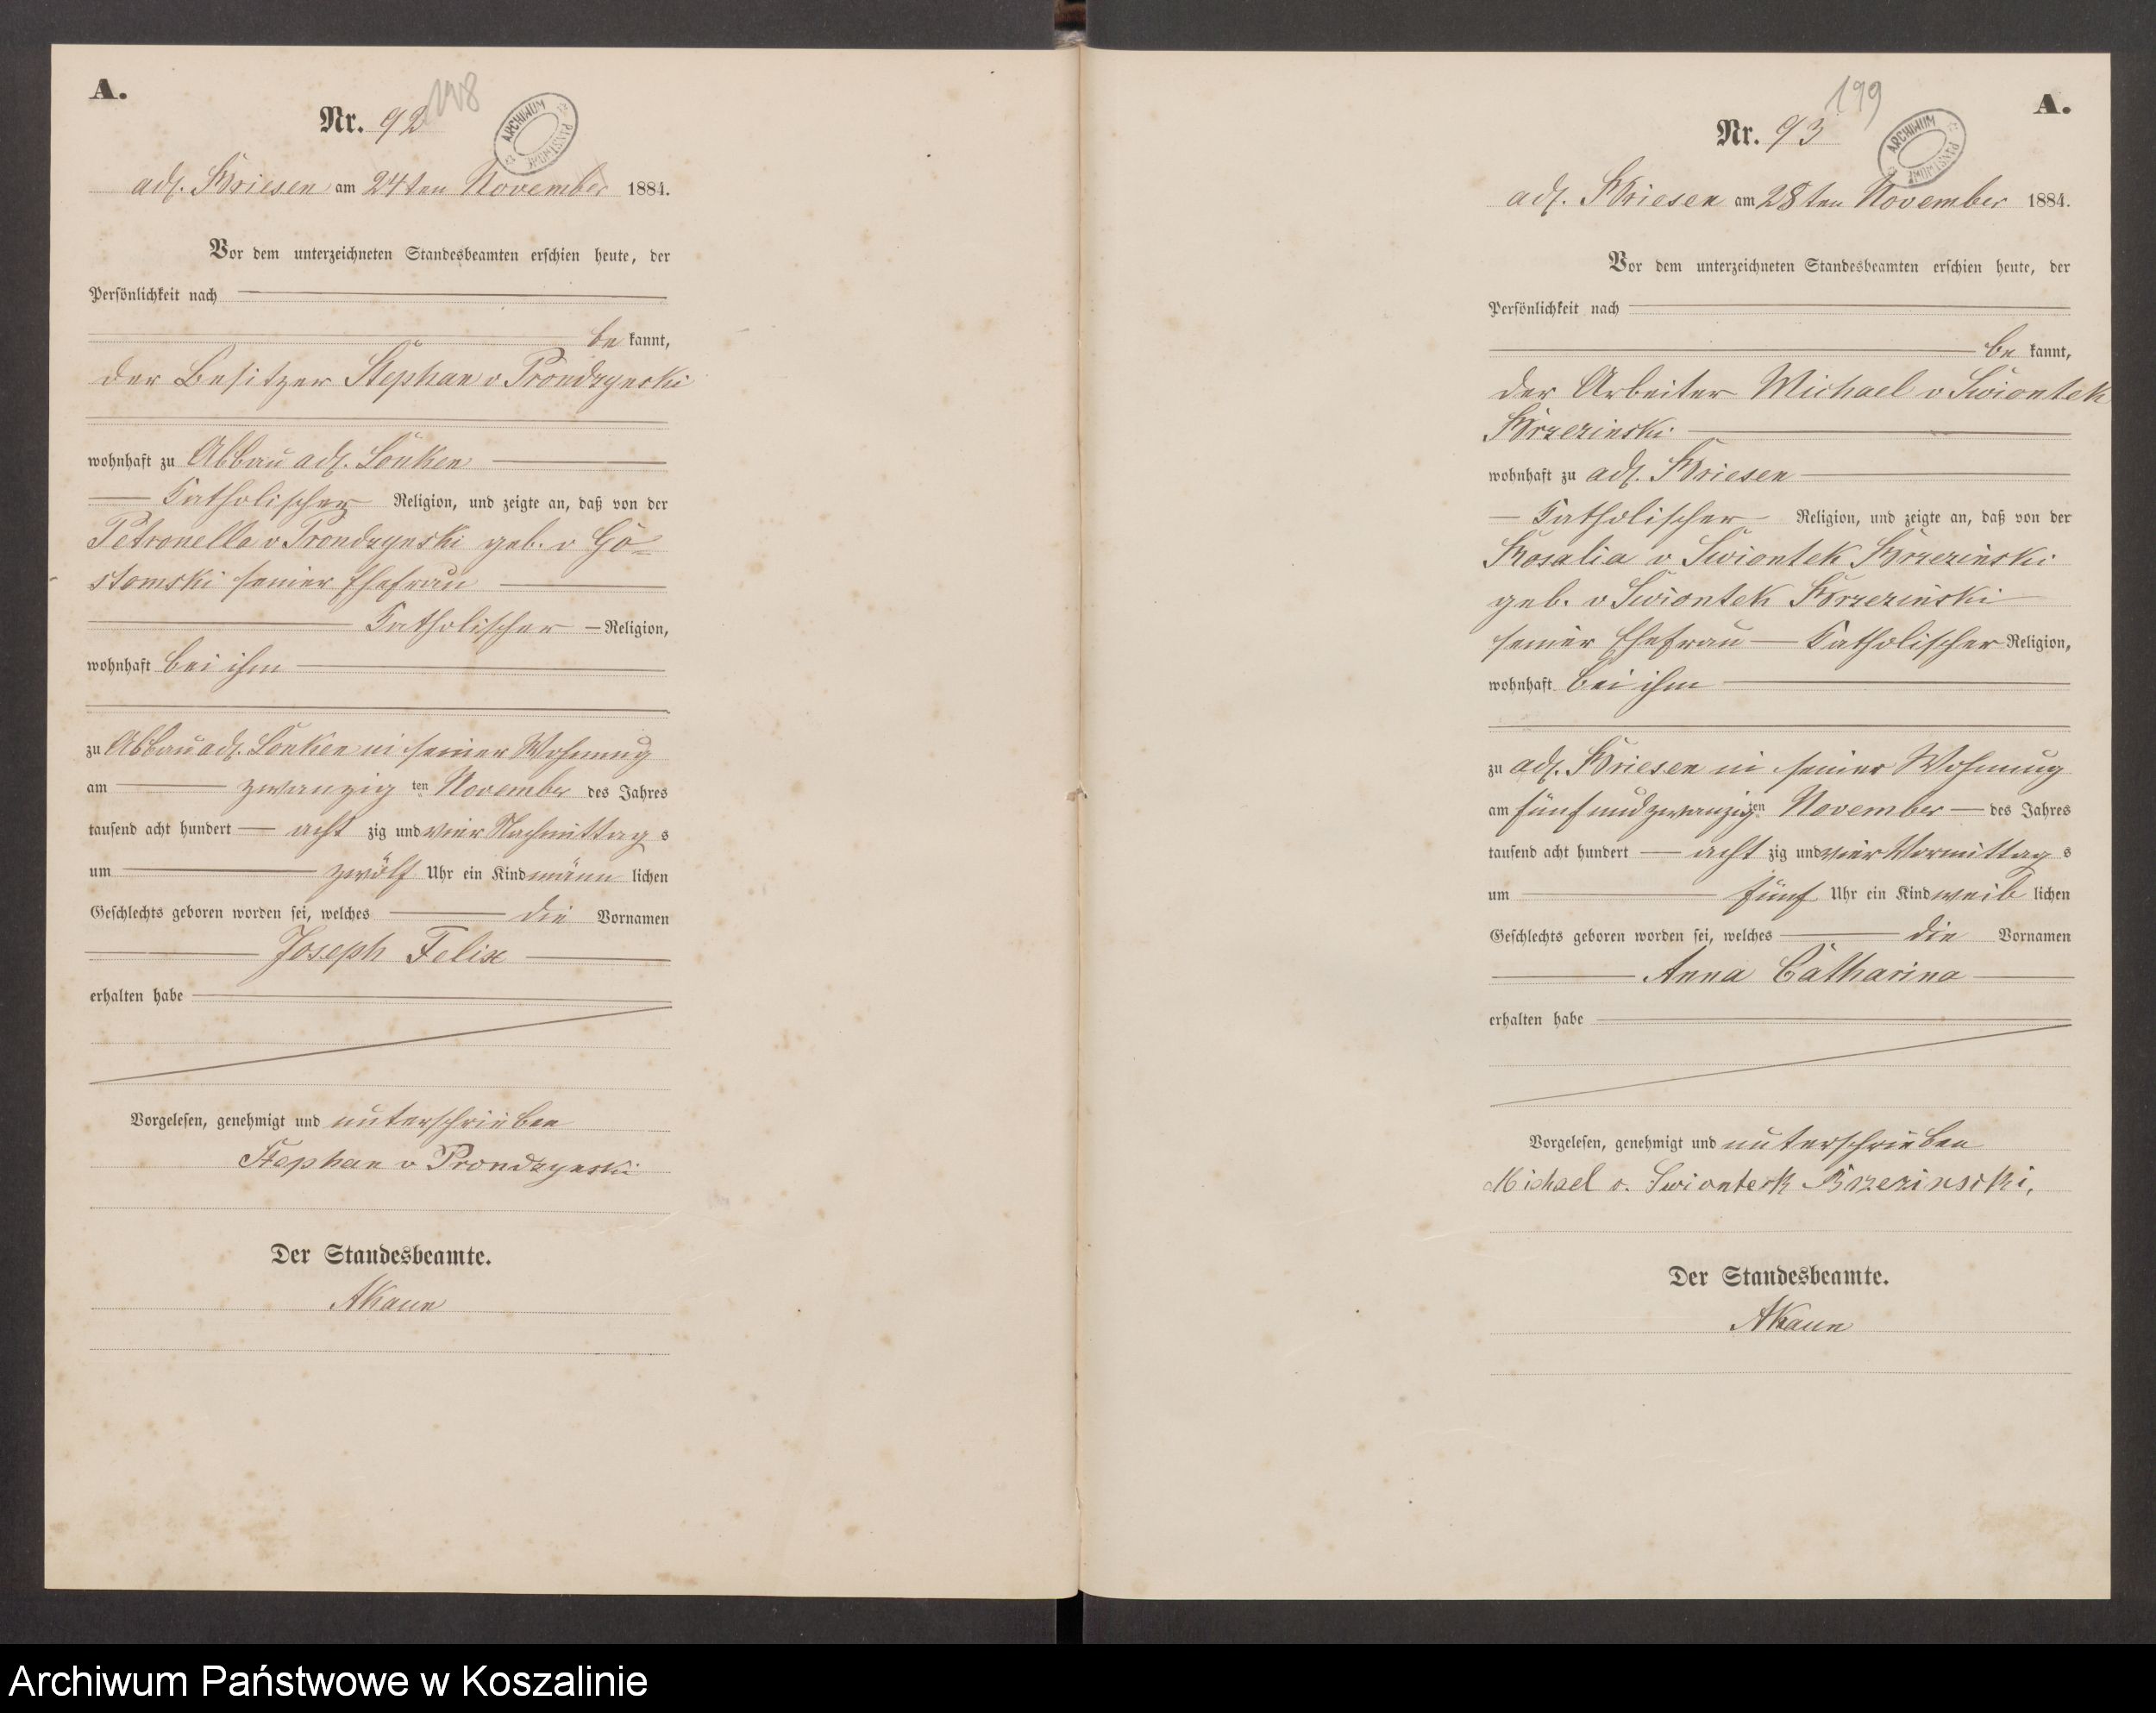 A.
198
Nr. 92
ARCHIWUM PAŃSTWOWE
adl. Briesen am 24ten November 1884.
Vor dem unterzeichneten Standesbeamten erschien heute, der
Persönlichkeit nach
be kannt,
der Besitzer Stephan v Prondzynski
wohnhaft zu Abbau adl. Lonken
Katholischer Religion, und zeigte an, daß von der
Petronella v Prondzynski geb. v Go=
stomski seiner Ehefrau
Katholischer Religion,
wohnhaft bei ihm
zu Abbau adl. Lonken in seiner Wohnung
am zwanzig ten November des Jahres
tausend acht hundert acht zig und vier Nachmittag s
um zwölf Uhr ein Kind männ lichen
Geschlechts geboren worden sei, welches die Vornamen
Joseph Felix
erhalten habe
Vorgelesen, genehmigt und unterschrieben
Stephan v Prondzynski
Der Standesbeamte.
A.
199
Nr. 93
ARCHIWUM PAŃSTWOWE
adl. Briesen am 28ten November 1884.
Vor dem unterzeichneten Standesbeamten erschien heute, der
Persönlichkeit nach
be kannt,
der Arbeiter Michael v Swiontek
Brzezinski
wohnhaft zu adl. Briesen
Katholischer Religion, und zeigte an, daß von der
Rosalia v Swiontek Brzezinski
geb. v Swiontek Brzezinski
seiner Ehefrau Katholischer Religion,
wohnhaft bei ihm
zu adl. Briesen in seiner Wohnung
am fünfundzwanzig ten November des Jahres
tausend acht hundert acht zig und vier Vormittag s
um fünf Uhr ein Kind weib lichen
Geschlechts geboren worden sei, welches die Vornamen
Anna Catharina
erhalten habe
Vorgelesen, genehmigt und unterschrieben
Michael v. Swionteck Brzezinscki,
Der Standesbeamte.
Archiwum Państwowe w Koszalinie